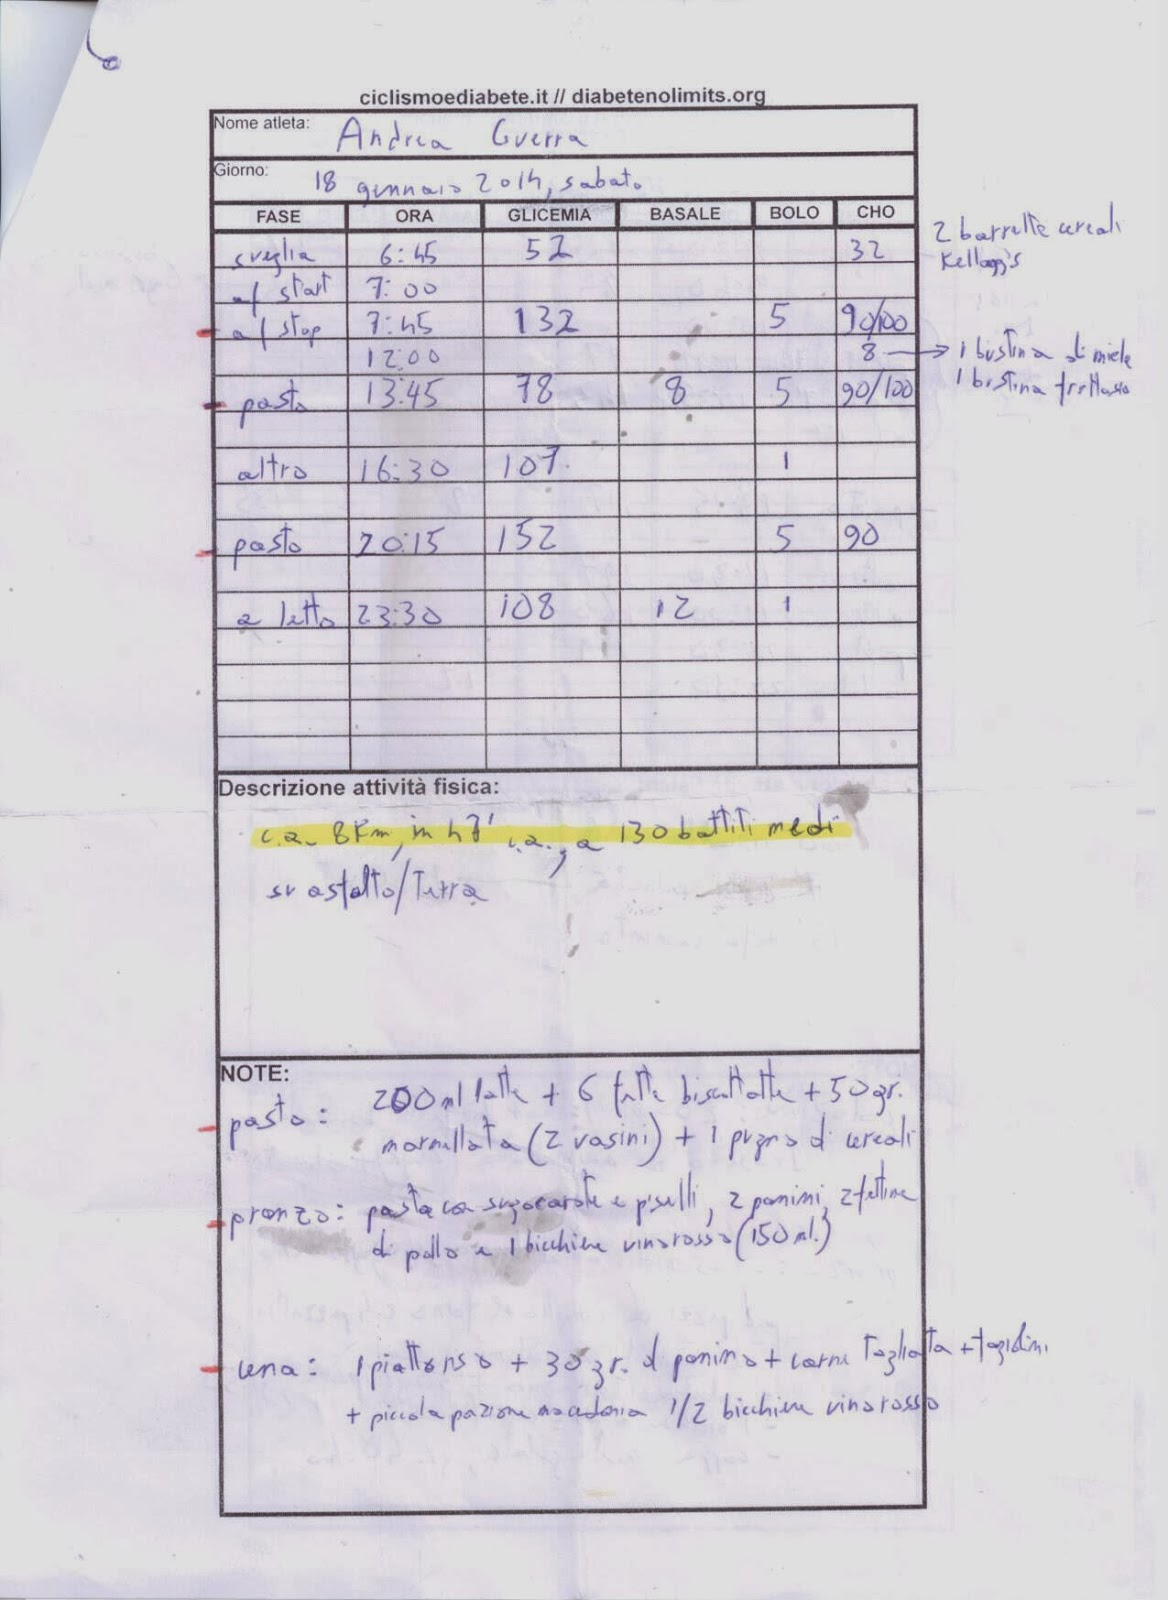 ciclismoediabete.it // diabetenolimits.org
Nome atleta: Andrea Guerra
Giorno: 18 gennaio 2014, sabato
FASE ORA GLICEMIA BASALE BOLO CHO
sveglia 6:45 52 32 2 barrette cereali
Kellogg's
a/ start 7:00
a/ stop 7:45 132 5 90/100
12:00 8 → 1 bustina di miele
1 bustina fruttosio
pasto 13:45 78 8 5 90/100
altro 16:30 107 1
pasto 20:15 152 5 90
a letto 23:30 108 12 1
Descrizione attività fisica:
c.a. 8 km, in 47' c.a., a 130 battiti medi
su asfalto/Terra
NOTE:
pasto: 200 ml latte + 6 fette biscottate + 50 gr.
marmellata (2 vasini) + 1 pugno di cereali
pranzo: pasta con sugo carote e piselli, 2 panini, 2 fettine
di pollo e 1 bicchiere vino rosso (150 ml.)
cena: 1 piatto riso + 30 gr. di panino + carne Tagliata + fagiolini
+ piccola pozione macedonia 1/2 bicchiere vino rosso